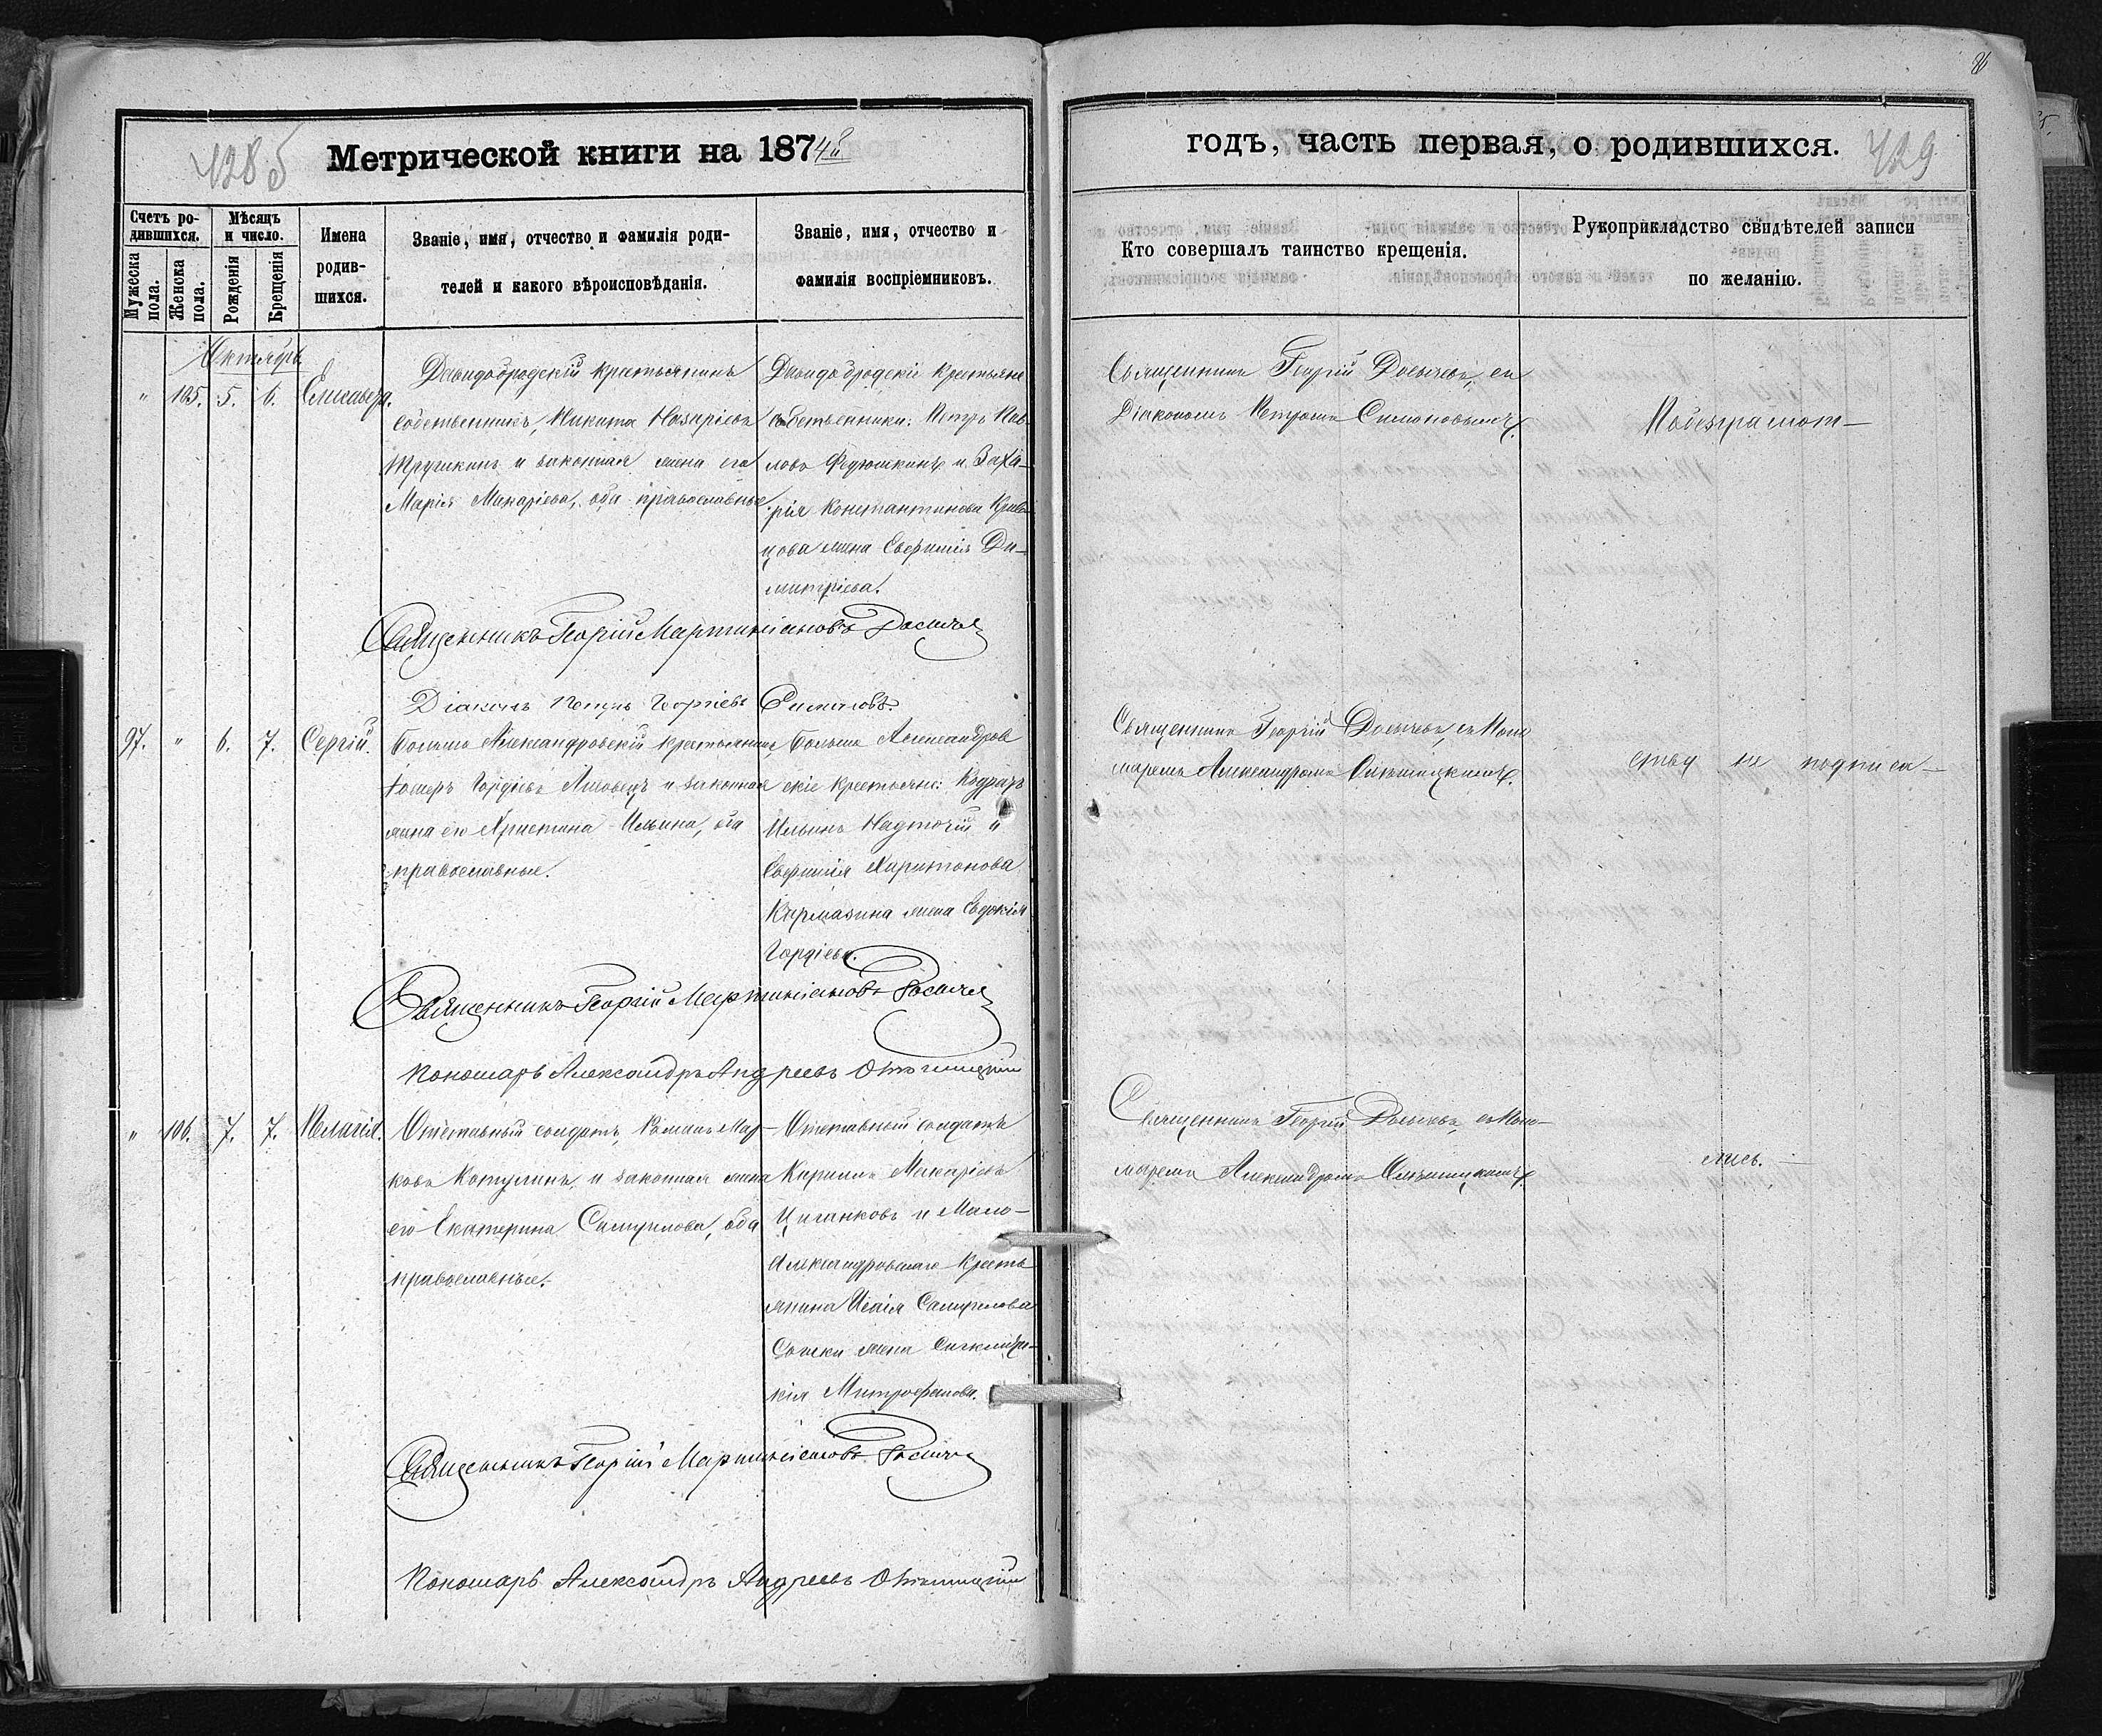 428 об
Метрической книги на 1874й
Счетъ ро-
дившихся.
Мужеска пола.
Женска пола.
Мѣсяцъ
и число.
Рожденія
Крещенія
Имена
родив-
шихся.
Званіе, имя, отчество и фамилія роди-
телей и какого вѣроисповѣданія.
Званіе, имя, отчество и
фамилія воспріемниковъ.
Октябрь
" 105. 5. 6. Елисавета.
Давидобродскій крестьянинъ
собственникъ, Никита Назаріевъ
и законная жена его
Марія Макаріева, оба православные.
Давидобродскіе крестьяне
собственники: Петръ Пав-
ловъ Федюшкинъ и Заха-
рія Константинова Крив-
цова жена Евфимія Ди-
митріева.
Священникъ Георгій Мартиніановъ
Діаконъ Петръ Георгіевъ Симоновъ.
97. " 6. 7. Сергій.
Больше Александровскій крестьянинъ,
Гордіевъ и законная
жена его Христина Ильина, оба
православные.
Больше Александров
скіе крестьяне: Кодратъ
Ильинъ Надточій и
Евфимія Харитонова
Кармазина жена Евдокія
Гордіева.
Священникъ Георгій Мартиніановъ
Пономарь Александръ Андреевъ
" 106. 7. 7. Пелагія.
Отставный солдатъ, Романъ Мар-
ковъ и законная жена
его Екатерина Самуилова, оба
православные.
Отставный солдатъ
Кириллъ Макаріевъ
Циганковъ и Мало-
Александровскаго кресть
янина Исаія Самуилова
жена
кія Митрофанова.
Священникъ Георгій Мартиніановъ
Пономарь Александръ Андреевъ
годъ, часть первая, о родившихся.
429
Кто совершалъ таинство крещенія.
Рукоприкладство свидѣтелей записи
по желанію.
Священникъ Георгій съ
Діакономъ Петромъ Симоновымъ.
По безграмот-
Священникъ Георгій съ Поно
маремъ Александромъ
ству не подписа-
Священникъ Георгій съ Поно-
маремъ Александромъ
лись.